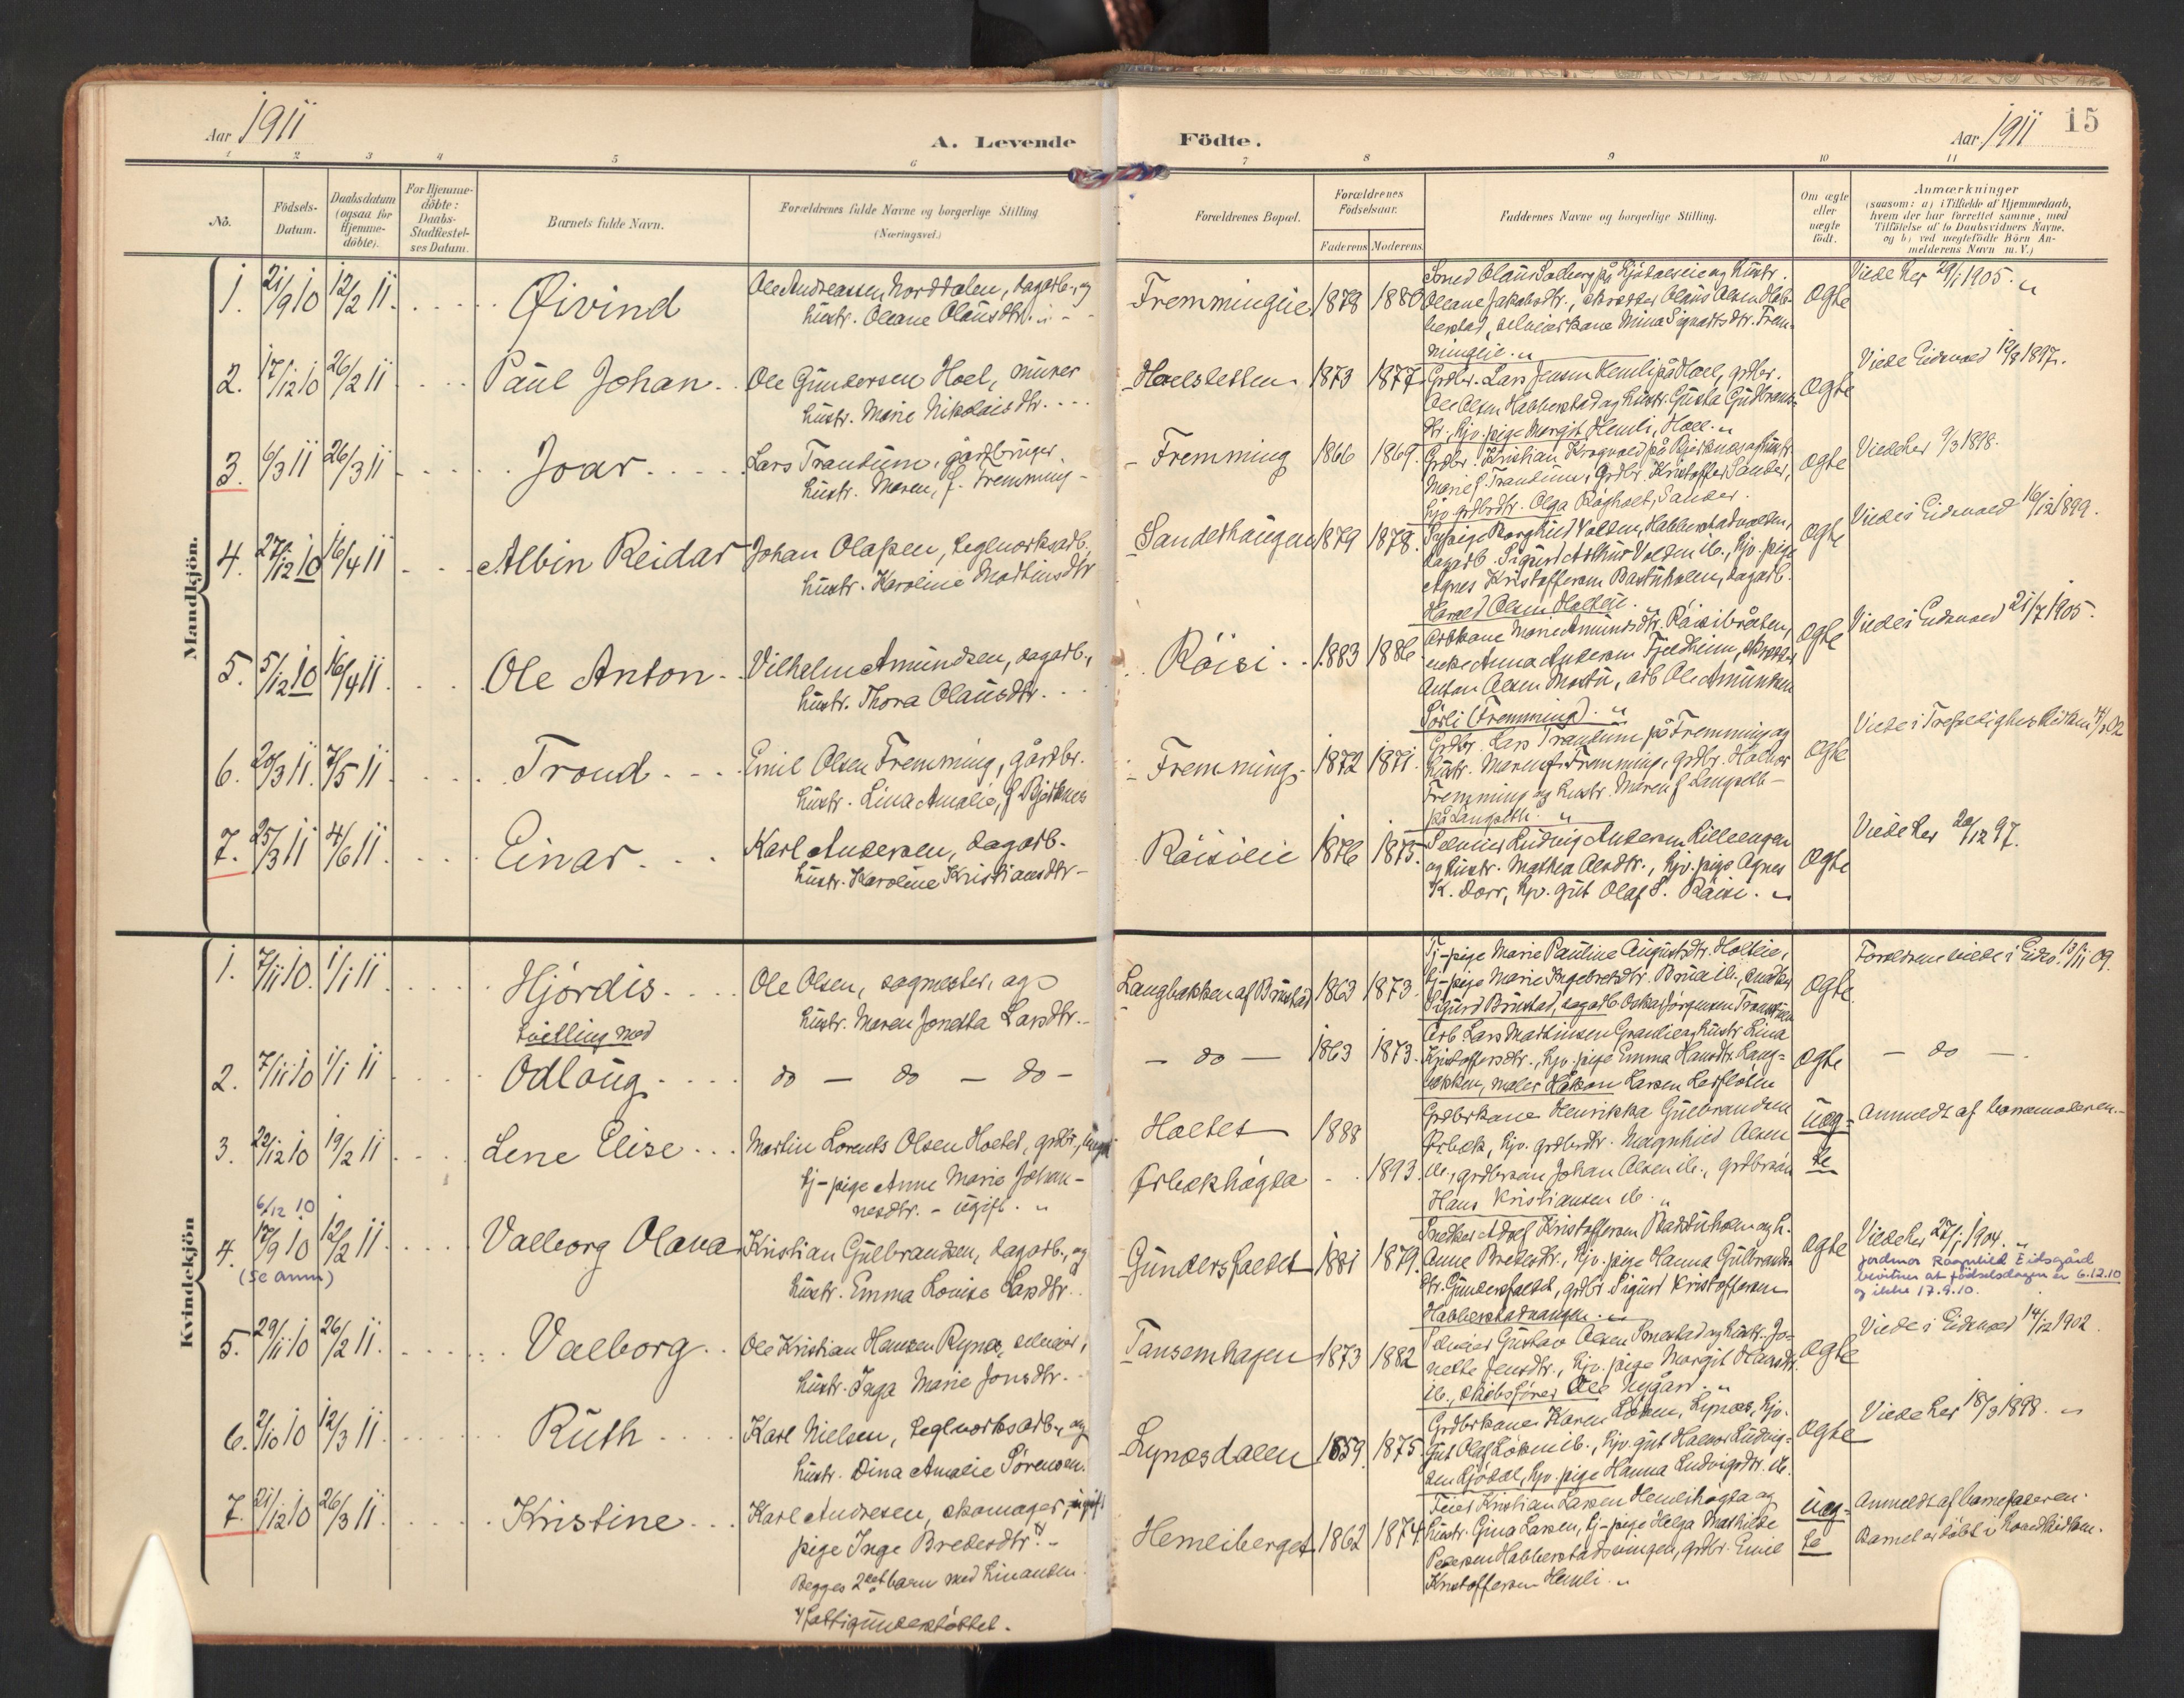 Aar 1911
A. Levende
Födte.
Aar 1911
15
1 2 3 4 5 6 7 8 9 10 11
No.
Födsels-
Datum.
Daabsdatum
(ogsaa for
Hjemme-
döbte).
For Hjemme-
döbte:
Daabs-
Stadfæstel-
ses Datum.
Barnets fulde Navn.
Forældrenes fulde Navne og borgerlige Stilling
(Næringsvei.)
Forældrenes Bopæl.
Forældrenes
Födselsaar.
Faderens Moderens
Faddernes Navne og borgerlige Stilling.
Om ægte
eller
uægte
födt.
Anmærkninger
(saasom: a) i Tilfælde af Hjemmedaab,
hvem der har forrettet samme, med
Tilföielse af to Daabsvidners Navne,
og b) ved uægtefödte Börn An-
melderens Navn m. V.)
Mandkjön.
1. 21/9 10 12/2 11. Øivind
Ole Andreassen Norddalen, dagarb., og
hustr. Oleane Olausdtr.
Fremminglie 1878 1880
Smed Olaus Solberg på
Oleane Jakobsdtr., Olaus Olsen Hab-
berstad, selveierkone Mina Sigvartsdtr. Frem-
minglie
ægte
Viede her 29/1 1905.
2. 17/12 10 26/2 11 Paul Johan
Ole Gundersen Hoel, murer
hustr. Marie Nikolaisdtr.
Hoelsletten 1873 1877
Grdbr. Lars Jensen Hemli på Hoel, grdbr.
Ole Olsen Habberstad og hustr. Gusta Gudbrands-
dtr., hjv. pige Margit Hemli, Hoel.
ægte
Viede Eidsvold 12/8 1897.
3. 6/3 11 26/3 11 Joar
Lars Trandum, gårdbruger,
hustr. Maren, f. Fremming
Fremming 1866 1869.
Grdbr. Kristian Kragvold på Bjerknes og hustr.
Marie f. Trandum, Grdbr. Kristoffer Sander,
hjv. grdbrdtr. Olga Råholt, Sander.
ægte
Viede her 9/3 1898.
4. 27/12 10 16/4 11 Albin Reidar
Johan Olafsen, teglverksarb.,
hustr. Karoline Martinsdtr
Sanderhaugen 1879 1878.
Sypige Borghild Volden, Habberstadvolden,
dagarb. Sigurd Arthur Volden ib., hjv. pige
Agnes Kristoffersen Bastuholen, dagarb.
Harald Olsen Holtlie.
ægte
Viede i Eidsvold 16/12 1899.
5. 5/12 10 16/4 11 Ole Anton
Vilhelm Amundsen, dagarb.,
hustr. Thora Olausdtr.
Råisi 1883 1886
Arbkone Marie Amundsdtr. Råisibråten,
enke Anna Andersen Fjeldheim,
Anton Olsen Mostu, arb. Ole Amundsen
Sörli (Fremming).
ægte
Viede i Eidsvold 21/7 1905.
6. 20/3 11. 7/5 11 Trond
Emil Olsen Fremming, gårdbr.
hustr. Lina Amalie, f. Bjerknes
Fremming 1872 1871.
Grdbr. Lars Trandum på Fremming og
hustr. Maren f. Fremming, grdbr. Halvor
Fremming og hustr. Maren f. Langseth
på Langseth.
ægte
Viede i Trefoldighedskirken
7. 25/3 11 4/6 11. Einar
Karl Andersen, dagarb.
hustr. Karoline Kristiansdtr
Råisilie 1876 1875.
Selveier Ludvig Andersen Lilleengen
og hustr. Mathea Olsdtr., hjv. pige Agnes
K. Dorr, hjv. gut Olaf S. Råisi.
ægte
Viede her 20/12 97.
Kvindekjön
1. 7/11 10. 1/1 11 Hjördis
tvilling med
Ole Olsen, sagmester, og
hustr. Maren Jonetta Larsdtr.
Langbakken af Brustad 1863 1873.
Tj-pige Marie Pauline Augustsdtr. Holtlie,
tj-pige Marie Ingebretsdtr. Bruu ib., snedker
Sigurd Brustad, dagarb. Oskar Jörgensen Trandum
ægte
Forældrene viede i Eidsv. 13/11 09.
2. 7/11 10 1/1 11 Odlaug
do — do — do —
— do — 1863 1873.
Arb. Lars Mathiesen Granlie og hustr. Lina
Kristoffersdtr., hjv. pige Emma Hansdtr. Lang-
bakken, maler Håkon Larsen
ægte
— do —
3. 22/12 10 19/2 11 Lene Elise
Martin Lorents Olsen Holtet, grdbr., ungk.
tj-pige Anne Marie Johan-
nesdtr. – ugift.
Holtet 1888
Ørbekhögda 1893
Grdbrkone Henrikka Gulbrandsen
Ørbek, hjv. grdbrdtr. Magnhild Olsen
ib., grdbrsön Johan Olsen ib., grdbrsön
Hans Kristiansen ib.
uæg-
te
Anmeldt af barnemoderen.
6/12 10
4. 17/9 10 12/2 11. Valborg Olava
(se anm)
Kristian Gulbrandsen, dagarb., og
hustr. Emma Louise Larsdtr.
Gundersfaldet 1881 1879.
Snedker Adolf Kristoffersen Bastuholen og h.
Anne Bredesdtr., hjv. pige Hanna Gulbrands-
dtr. Gundersfaldet, grdbr. Sigurd Kristoffersen
Habberstadvangen.
ægte
Viede her 27/1 1904.
Jordmor Ragnhild Eidsgård
bevitner at födselsdagen er 6.12.10
og ikke 17.9.10.
5. 29/11 10 26/2 11. Valborg
Ole Kristian Hansen Rynæs, selveier,
hustr. Inga Marie Jonsdtr.
Tansemhagen 1873 1882
Selveier Gustav Olsen og hustr. Jo-
nette Jensdtr., hjv. pige Margit Hansdtr.
ib., skibsförer Ole Nygård.
ægte
Viede i Eidsvold 14/12 1902.
6. 2/10 10 12/3 11. Ruth
Karl Nielsen, teglverksarb., og
hustr. Dina Amalie Sörensen.
Lynæsdalen 1859 1875
Grdbrkone Karen Löken, Lynæs, hjv.
gut Olaf Löken ib., hjv. gut Halvor Ludvig-
sen, hjv. pige Hanna Ludvigsdtr. ib.
ægte
Viede her 18/3 1898.
7. 21/12 10 26/3 11. Kristine
Karl Andresen, skomager, ugift
pige Inge Bredesdtr. x)
Begges 2det barn med hinanden.
x) fattigunderstöttet.
Hemliberget 1862 1874
Feier Kristian Larsen Hemlihögda og
hustr. Gina Larsen, tj-pige Helga Mathilde
Pedersen Habberstadvangen, grdbr. Emil
Kristoffersen Hemli.
uæg-
te
Anmeldt af barnefaderen.
Barnet er döbt i hovedkirken.